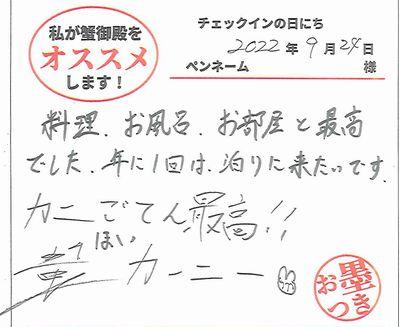 私が蟹御殿を
オススメ
します！
チェックインの日にち
2022年9月24日
ペンネーム 様
料理、お風呂、お部屋と最高
でした。年に1回は、泊りに来たいです。
カニごてん最高!!
ほい
カーニー
お墨つき